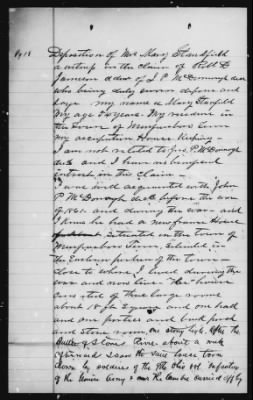 Pg 18
Deposition of Mrs Mary Stansfield
a witness in the claim of Robt D
Jameson admr of J P McDonough decd
who being duly sworn deposes and
says my name is Mary Stanfield
My age years. My residence in
the town of Murfreesboro Tenn
my occupation House Keeping
I am not related to Jno. P. McDonough
decd and I have no beneficial
interest in the claim
I was well acquainted with John
P McDonough decd before the war
of 1861 and during the war and
I know he had a new frame House
situated in the town of
Murfreesboro Tenn. situated in
the Eastern portion of the town
close to where I lived during the
war and now live. The house
consisted of three large rooms
about 18 feet square and one hall
and one portico and back porch
and store room, one story high. After the
Battle of Stones River about a week
I saw the house torn
down by soldiers of the 9th Ohio Vol Infantry
of the Union Army & saw the lumber carried off by